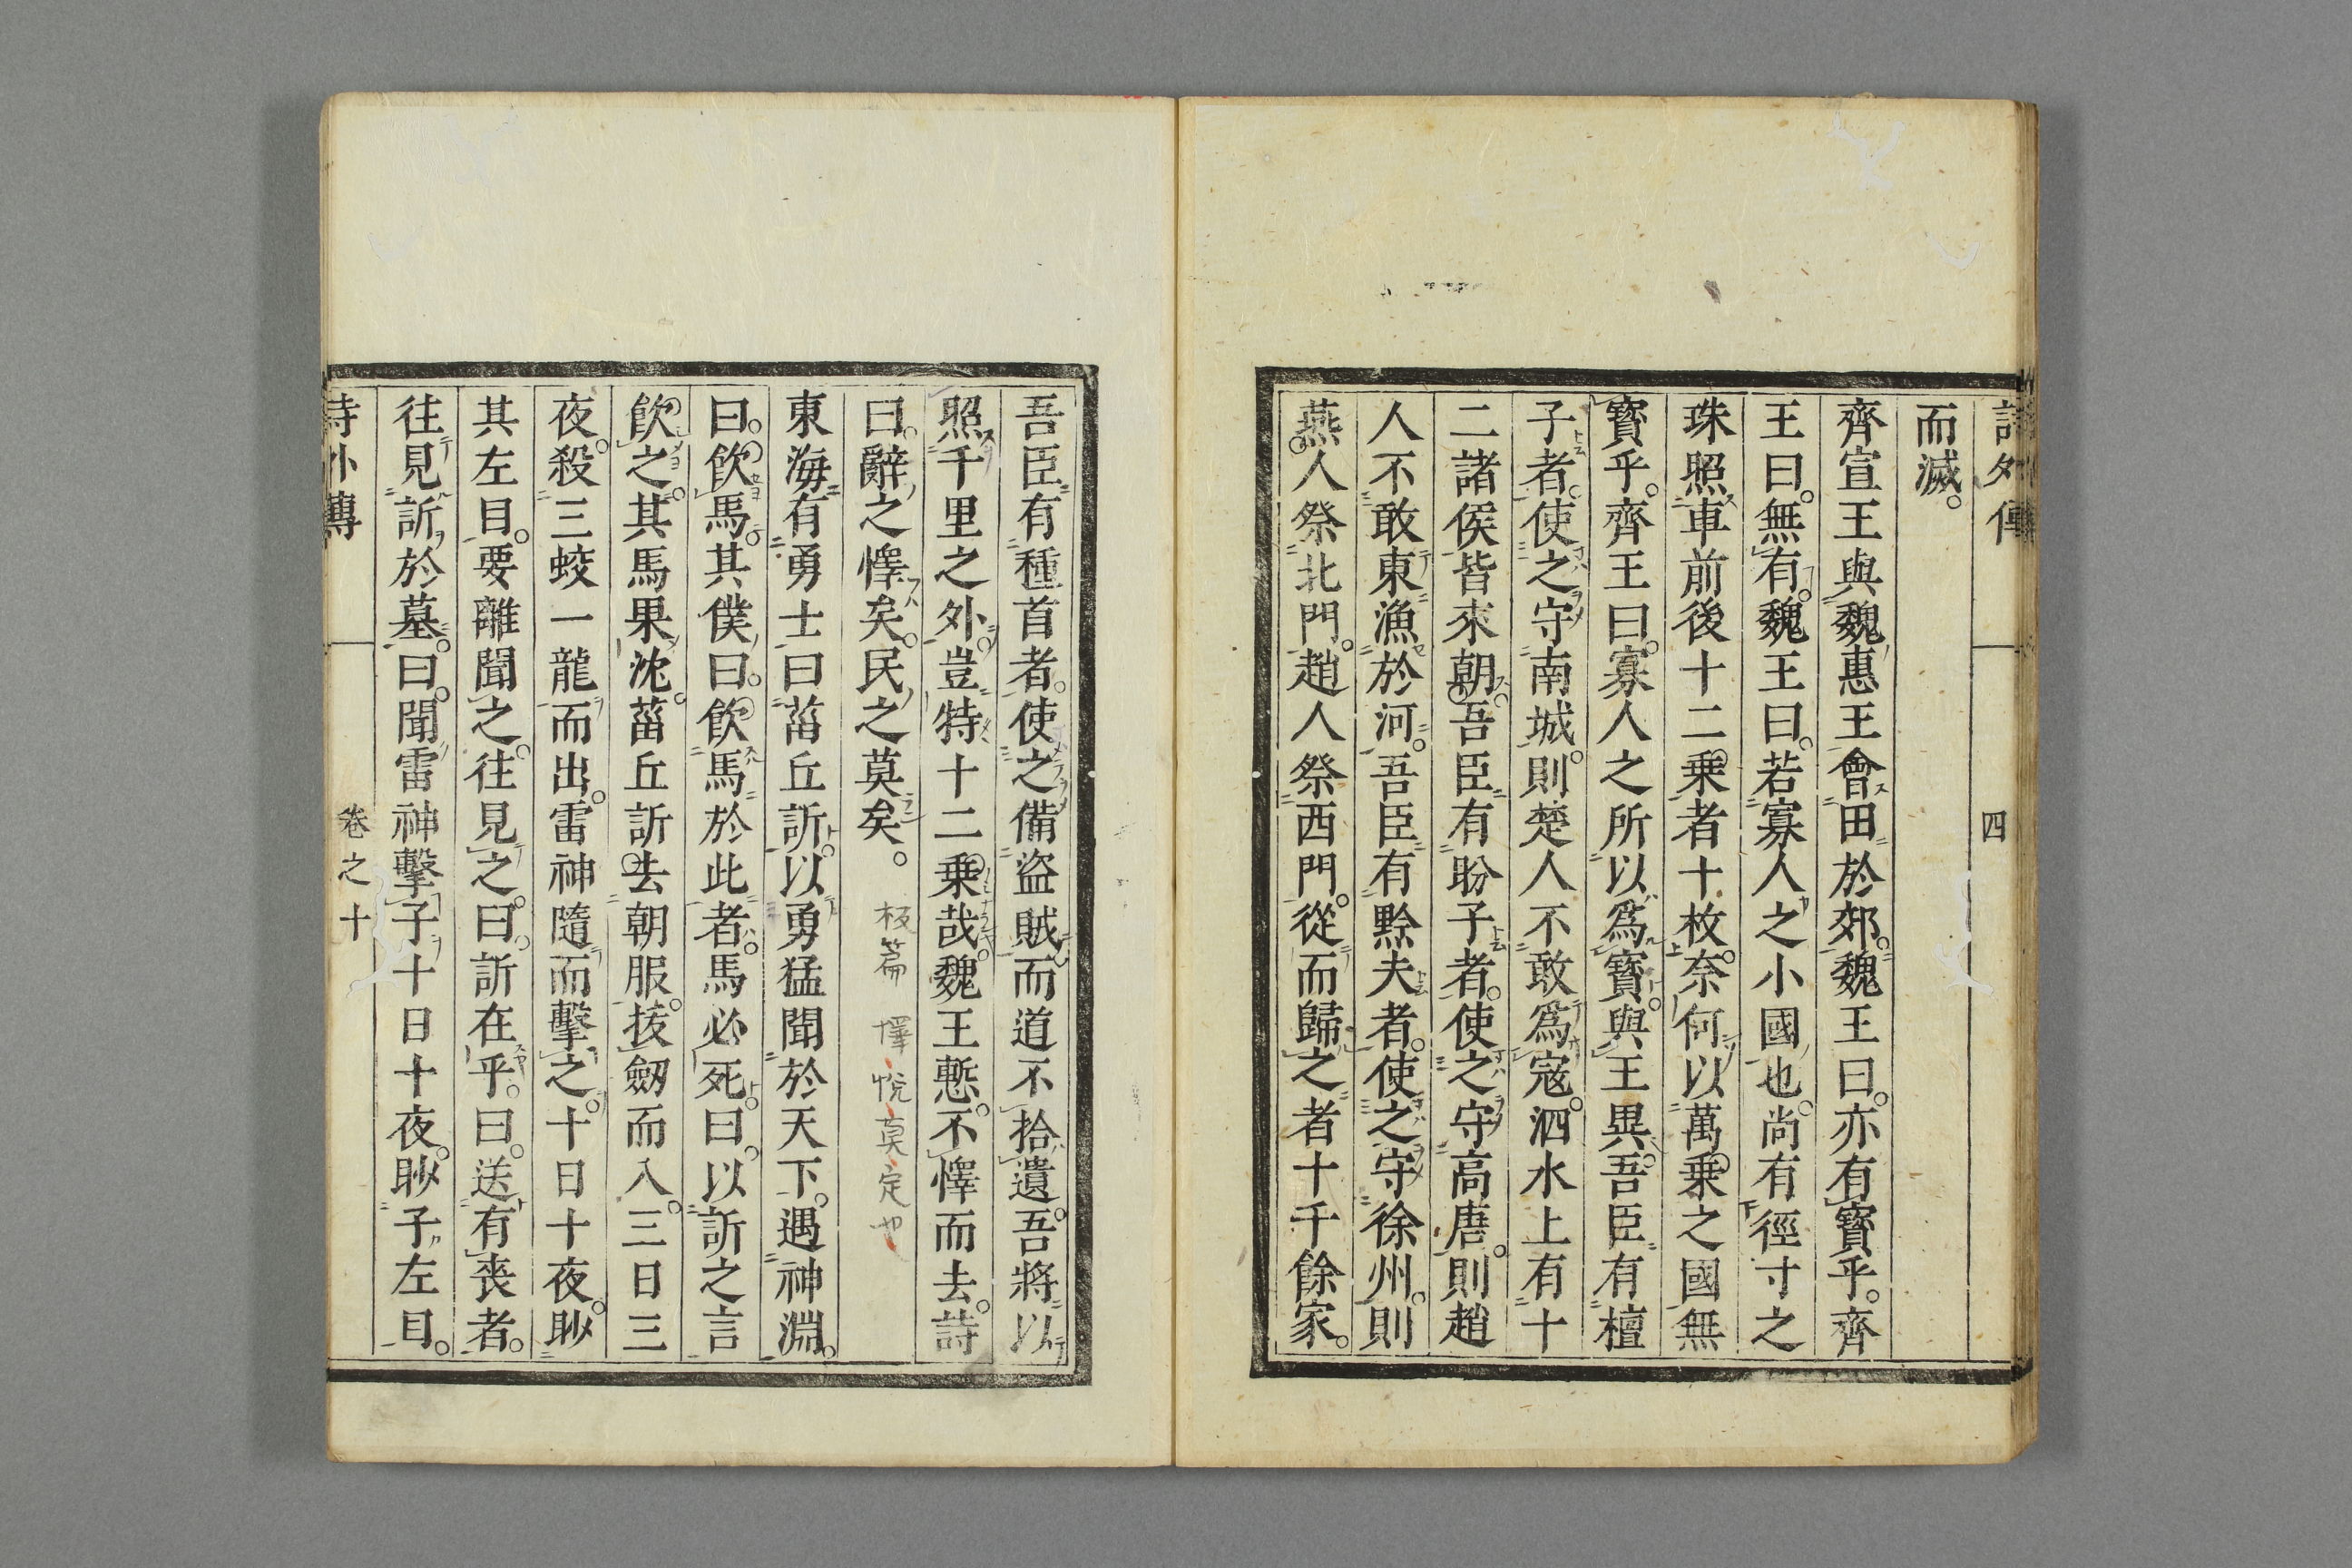 詩外傳 四
而滅。
齊宣王與魏惠王會田於郊。魏王曰。亦有寶乎。齊
王曰。無有。魏王曰。若寡人之小國也。尚有徑寸之
珠照車前後十二乗者十枚。奈何以萬乗之國無
寶乎。齊王曰。寡人之所以爲寶。與王異。吾臣有檀
子者。使之守南城。則楚人不敢爲寇。泗水上有十
二諸侯皆來朝。吾臣有盼子者。使之守高唐。則趙
人不敢東漁於河。吾臣有黔夫者。使之守徐州。則
燕人祭北門。趙人祭西門。從而歸之者十千餘家。
吾臣有種首者。使之備盜賊而道不拾遺。吾將以
照千里之外。豈特十二乗哉。魏王慙。不懌而去。詩
曰。辭之懌矣。民之莫矣。 板篇 懌悅莫定也
東海有勇士曰菑丘訢。以勇猛聞於天下。遇神淵。
曰。飮馬。其僕曰。飮馬於此者。馬必死。曰。以訢之言
飮之。其馬果沈。菑丘訢去朝服。拔劒而入。三日三
夜。殺三蛟一龍而出。雷神隨而擊之。十日十夜。眇
其左目。要離聞之。往見之。曰。訢在乎。曰。送有喪者。
往見訢於墓。曰。聞雷神擊子十日十夜。眇子左目。
詩外傳 卷之十